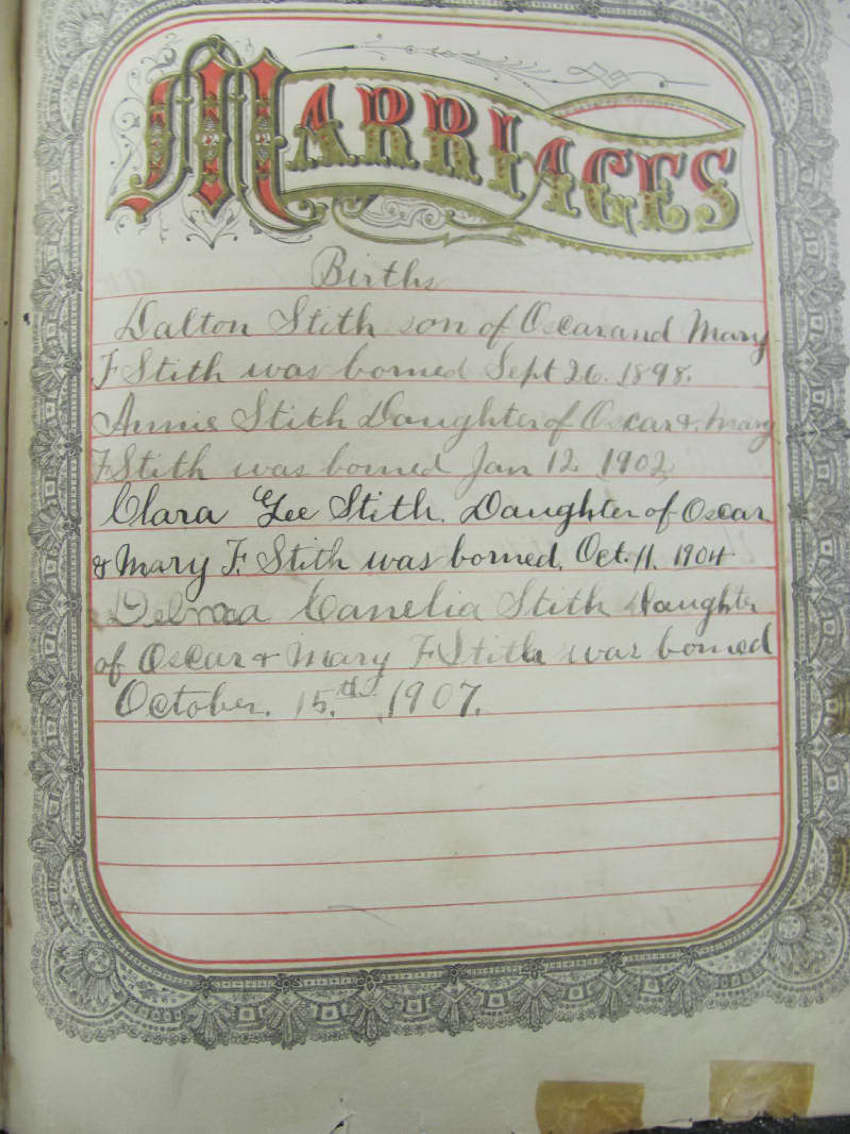 MARRIAGES
Births
Dalton Stith son of Oscar and Mary
F Stith was borned Sept 26. 1898.
Annie Stith Daughter of Oscar & Mary
F Stith was borned Jan 12 1902
Clara Lee Stith. Daughter of Oscar
& Mary F. Stith was borned, Oct. 11. 1904
Stith Daughter
of Oscar & Mary F Stith was borned
October. 15.th 1907.